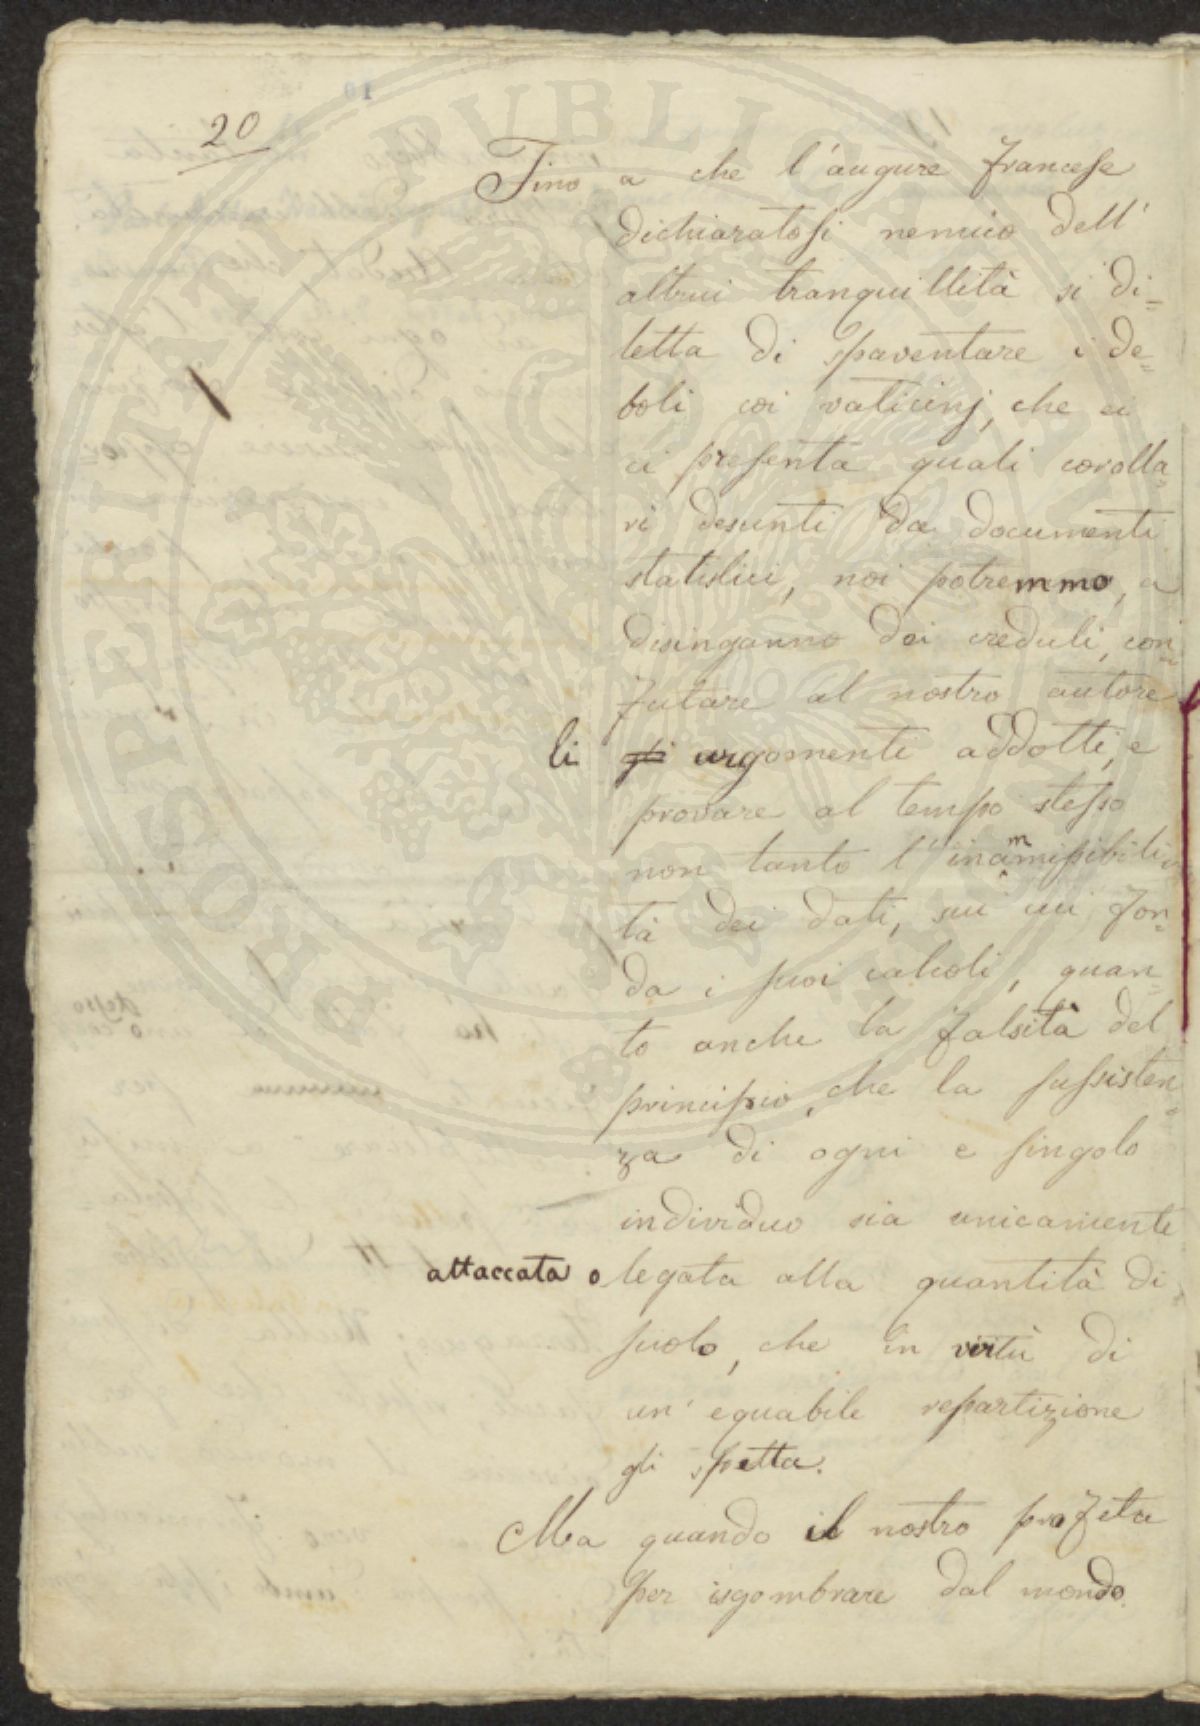 20
Fino a che l'augure francese
dichiaratosi nemico dell'
altrui tranquillità si di=
letta di spaventare i de=
boli coi vaticinj, che ei
ci presenta quali corolla=
ri desunti da documenti
statistici, noi potremmo, a
disinganno dei creduli, con=
futare al nostro autore
li gli argomenti addotti, e
provare al tempo stesso
non tanto l'inammissibili=
tà dei dati, su cui fon=
da i suoi calcoli, quan=
to anche la falsità del
principio, che la sussisten=
za di ogni e singolo
individuo sia unicamente
attaccata o legata alla quantità di
suolo, che in virtù di
un' equabile repartizione
gli spetta.
Ma quando il nostro profeta
per isgombrare dal mondo
PROSPERITATI PUBLICAE